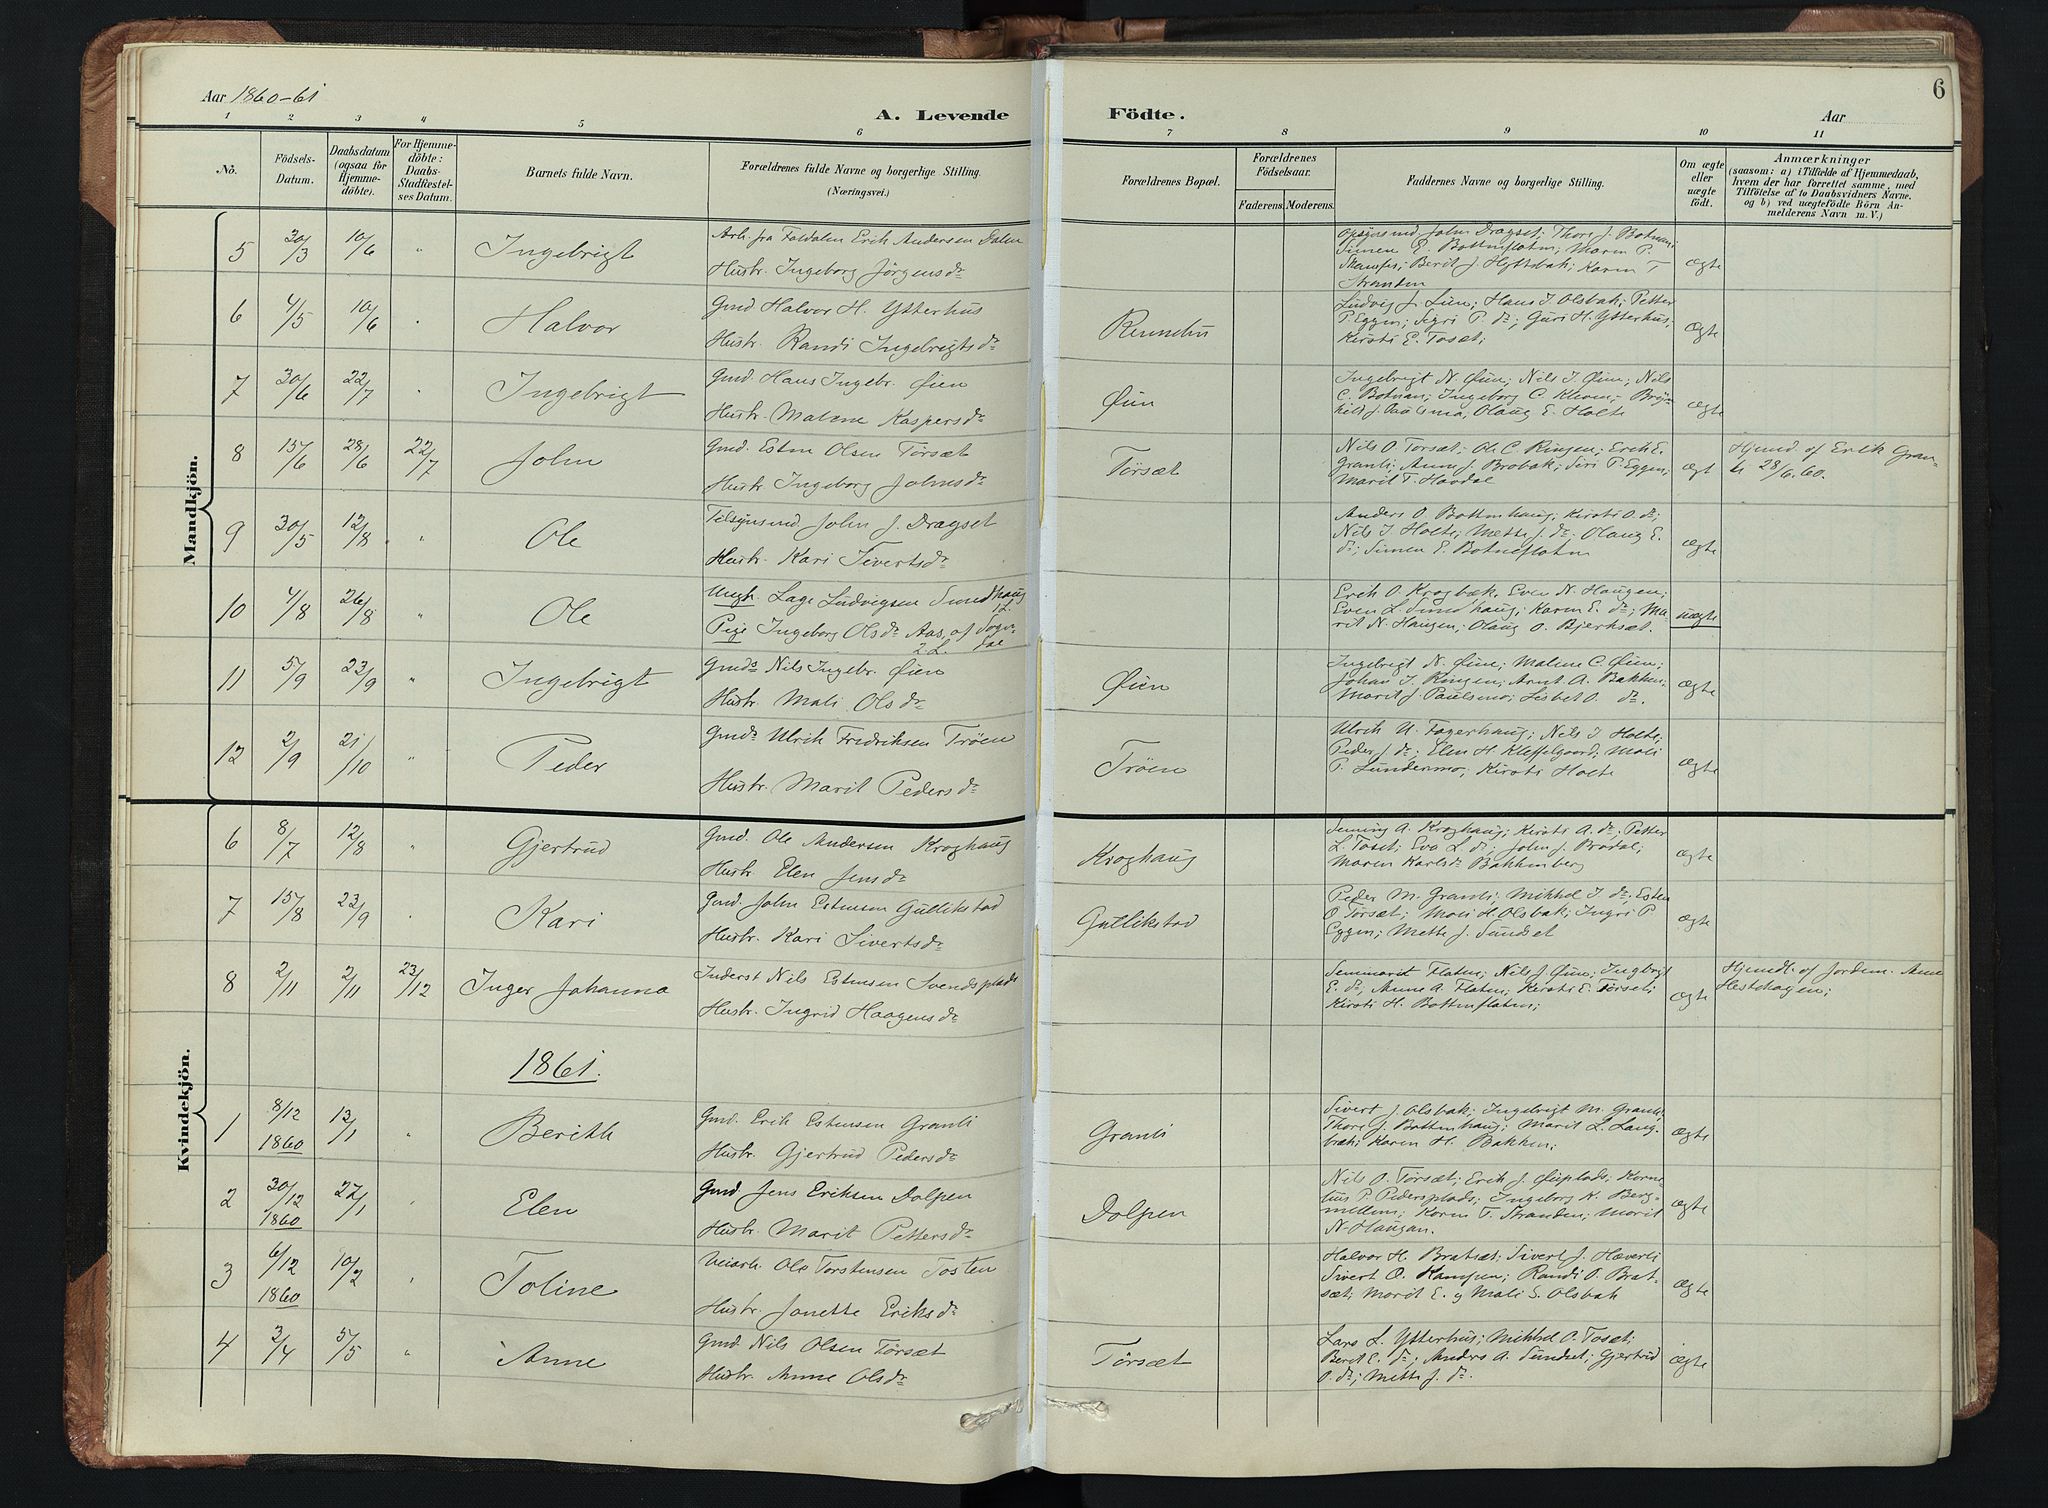 Aar 1860-61
A. Levende
Födte.
Aar
6
1 2 3 4 5 6 7 8 9 10 11
No.
Födsels-
Datum.
Daabsdatum
(ogsaa for
Hjemme-
döbte).
For Hjemme-
döbte:
Daabs-
Stadfæstel-
ses Datum.
Barnets fulde Navn.
Forældrenes fulde Navne og borgerlige Stilling.
(Næringsvei.)
Forældrenes Bopæl.
Forældrenes
Födselsaar.
Faderens. Moderens.
Faddernes Navne og borgerlige Stilling.
Om ægte
eller
uægte
födt.
Anmærkninger
(saasom: a) i Tilfælde af Hjemmedaab,
hvem der har forrettet samme, med
Tilföielse af to Daabsvidners Navne.
og b) ved uægtefödte Börn An-
melderens Navn m. V.)
Mandkjön.
5 30/3 10/6 " Ingebrigt
Arb. fra Foldalen Erik Andersen Dalen
Hustr. Ingeborg Jørgensdr
Opsynsmd John Dragset; Thore J. Botnan;
Simen E. Bottenflaten; Maren P.
Stamfes; Berit J. Hyttebak; Karen T
Stranden
ægte
6 4/5 10/6 " Halvor
Gmd Halvor H. Ytterhus
Hustr. Randi Ingebrigtsdr
Rennebu
Ludvig J. Lien; Hans I Olsbak; Petter
P. Eggen; Sigri P. dr; Guri H. Ytterhus;
Kirsti E. Toset;
ægte
7 30/6 22/7 " Ingebrigt
Gmd. Hans Ingebr. Øien
Hustr. Malene Kaspersdr
Øien
Ingebrigt N. Øien; Nils I. Øien; Nils
C. Botnan; Ingeborg C Kleven; Bry-
hild J. Paulsmo, Olaug E. Holte
ægte
8 15/6 28/6 22/7 John
Gmd. Esten Olsen Tørsæt
Hustr. Ingeborg Johnsdr
Tørsæt
Nils O. Torsæt; Ole C Ringen; Erik E.
Granli; Anne J. Brobak; Siri P. Eggen;
Marit T. Havdal
ægt
Hjemd af Erik Gran-
li 28/6.60.
9 30/5 12/8 " Ole
Tilsynsmd John J. Dragset
Hustr. Kari Sivertsdr
Anders O. Bottenhaug; Kirsti O. dr;
Nils I. Holte; Mette J. dr; Olaug E.
dr; Simen E. Botneflaten
ægte
10 4/8 26/8 " Ole
Ungk. Lage Ludvigsen Sundhaug
1 L.
Pige Ingeborg Olsdr Aas, af
2. L.
Erik O. Krogbæk, Even N. Haugen;
Even L. Sundhaug; Karen E. dr; Ma-
rit N. Haugen; Olaug O. Bjerksæt.
uægte
11 5/9 23/9 " Ingebrigt
Gmds Nils Ingebr. Øien
Hustr. Mali Olsdr
Øien
Ingebrigt N. Øien; Malene C. Øien;
Johan I. Ringen; Arnt A. Bakken;
Marit J. Paulsmo; Lisbet O. dr.
ægte
12 2/9 21/10 " Peder
Gmds Ulrik Fredriksen Trøen
Hustr. Marit Pedersdr
Trøen
Ulrik U. Fagerhaug; Nils I Holte;
Peder J. dr; Elen H. Kleffelgaard; Mali
P. Lundermo; Kirsti Holte
ægte
Kvindekjön.
6 8/7 12/8 " Gjertrud
Gmd. Ole Andersen Kroghaug
Hustr. Elen Jensdr
Kroghaug
Seming A. Kroghaug; Kirsti A. dr; Petter
L. Toset; Eva L. dr; John J. Brødal;
Maren Karlsdr Bakkenberg
ægte
7 15/8 23/9 " Kari
Gmd. John Estensen Gullikstad
Hustr. Kari Sivertsdr
Gullikstad
Peder M. Granli; Mikkel I dr; Esten
O Tørsæt; Mali H. Olsbak; Ingri P
Eggen; Mette J. Sundset
ægte
8 2/11 2/11 23/12 Inger Johanna
Inderst Nils Estensen Svendsplads
Hustr. Ingrid Haagensdr
Flaten; Nils J. Øien; Ingebrigt
E. dr; Anne A. Flaten; Kirsti E. Torset;
Kirsti H. Bottenflaten;
ægte
Hjemdt. af Jordem. Anne
Hestehagen;
1861.
1 8/12 1860 13/1 " Berith
Gmd. Erik Estensen Granli
Hustr. Gjertrud Pedersdr
Granli
Sivert J. Olsbak; Ingebrigt M. Granli;
Thore J. Bottenhaug; Marit L. Lang-
bræk; Karen H. Bakken;
ægte
2 30/12 1860 27/1 " Elen
Gmd Jens Eriksen Dolpen
Hustr. Marit Pettersdr
Dolpen
Nils O. Tørsæt; Erik J. Øiaplads; Korne
lius P. Pedersplads; Ingeborg K. Berg-
mellem; Karen T. Stranden; Marit
N. Haugan.
ægte
3 6/12 1860 10/2 " Toline
Veiarb. Ole Torstensen Tosten
Hustr. Janette Eriksdr
Halvor H. Bratset; Sivert J. Hæverli
Sivert O. Kampen; Randi O. Brat-
sæt; Marit E. og Mali S. Olsbak
ægte
4 3/4 5/5 " Anne
Gmd. Nils Olsen Tørsæt
Hustr. Anne Olsdr
Tørsæt
Lars L. Ytterhus; Mikkel O. Toset;
Berit E. dr; Anders A. Sundset; Gjertrud
O. dr; Mette J. dr.
ægte